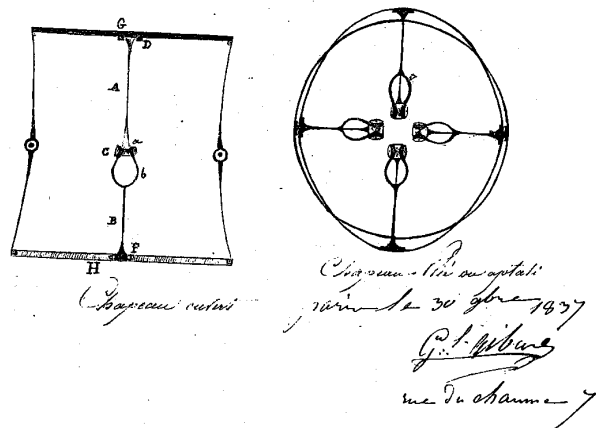 G
D
A
a
C
b
B
P
H
Chapeau ouvert
a
Chapeau Plié ou aplati
paris le 30 9bre 1837
rue du chaume 7